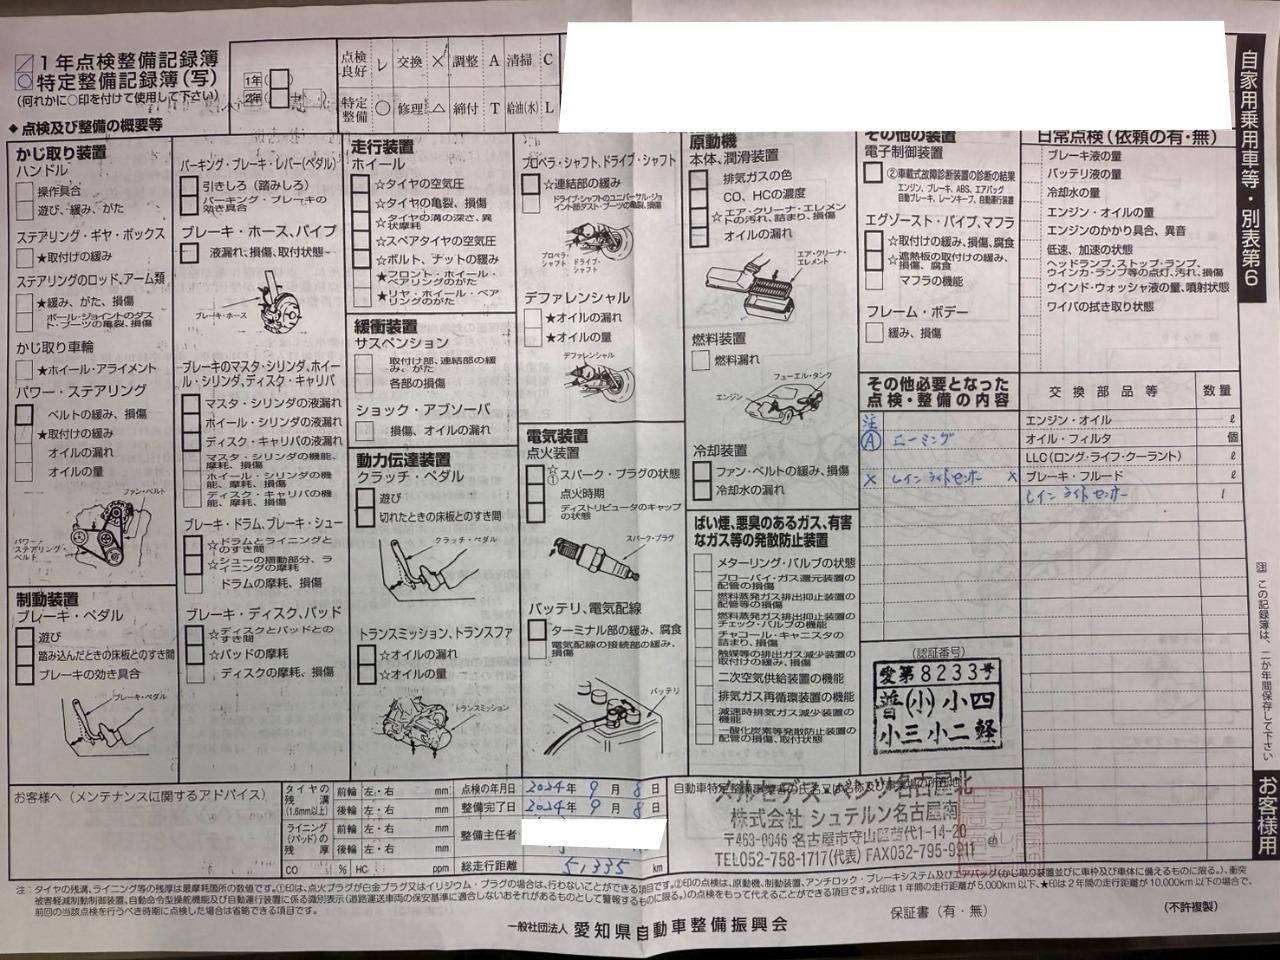 1年点検整備記録簿
特定整備記録簿(写)
(何れかに○印を付けて使用して下さい)
1年
2年
点検良好 レ 交換 × 調整 A 清掃 C
特定整備 ○ 修理 △ 締付 T 給油(水) L
自家用乗用車等・別表第6
◆点検及び整備の概要等
かじ取り装置
ハンドル
操作具合
遊び、緩み、がた
ステアリング・ギヤ・ボックス
★取付けの緩み
ステアリングのロッド、アーム類
★緩み、がた、損傷
ボール・ジョイントのダスト・ブーツの亀裂、損傷
かじ取り車輪
★ホイール・アライメント
パワー・ステアリング
ベルトの緩み、損傷
★取付けの緩み
オイルの漏れ
オイルの量
ファン・ベルト
パワー・ステアリング・ベルト
制動装置
ブレーキ・ペダル
遊び
踏み込んだときの床板とのすき間
ブレーキの効き具合
ブレーキ・ペダル
パーキング・ブレーキ・レバー(ペダル)
引きしろ(踏みしろ)
パーキング・ブレーキの効き具合
ブレーキ・ホース、パイプ
液漏れ、損傷、取付状態
ブレーキ・ホース
ブレーキのマスタ・シリンダ、ホイール・シリンダ、ディスク・キャリパ
マスタ・シリンダの液漏れ
ホイール・シリンダの液漏れ
ディスク・キャリパの液漏れ
マスタ・シリンダの機能、摩耗、損傷
ホイール・シリンダの機能、摩耗、損傷
ディスク・キャリパの機能、摩耗、損傷
ブレーキ・ドラム、ブレーキ・シュー
☆ドラムとライニングとのすき間
☆シューの摺動部分、ライニングの摩耗
ドラムの摩耗、損傷
ブレーキ・ディスク、パッド
☆ディスクとパッドとのすき間
☆パッドの摩耗
ディスクの摩耗、損傷
走行装置
ホイール
☆タイヤの空気圧
☆タイヤの亀裂、損傷
☆タイヤの溝の深さ、異状摩耗
☆スペアタイヤの空気圧
☆ボルト、ナットの緩み
★フロント・ホイール・ベアリングのがた
★リヤ・ホイール・ベアリングのがた
緩衝装置
サスペンション
取付け部、連結部の緩み、がた
各部の損傷
ショック・アブソーバ
損傷、オイルの漏れ
動力伝達装置
クラッチ・ペダル
遊び
切れたときの床板とのすき間
クラッチ・ペダル
トランスミッション、トランスファ
☆オイルの漏れ
☆オイルの量
トランスミッション
プロペラ・シャフト、ドライブ・シャフト
☆連結部の緩み
ドライブ・シャフトのユニバーサル・ジョイント部ダスト・ブーツの亀裂、損傷
プロペラ・シャフト
ドライブ・シャフト
デファレンシャル
★オイルの漏れ
★オイルの量
デファレンシャル
電気装置
点火装置
☆①スパーク・プラグの状態
点火時期
ディストリビュータのキャップの状態
スパーク・プラグ
バッテリ、電気配線
ターミナル部の緩み、腐食
電気配線の接続部の緩み、損傷
バッテリ
原動機
本体、潤滑装置
排気ガスの色
CO、HCの濃度
☆エア・クリーナ・エレメントの汚れ、詰まり、損傷
オイルの漏れ
エア・クリーナ・エレメント
燃料装置
燃料漏れ
フューエル・タンク
エンジン
冷却装置
ファン・ベルトの緩み、損傷
冷却水の漏れ
ばい煙、悪臭のあるガス、有害なガス等の発散防止装置
メターリング・バルブの状態
ブローバイ・ガス還元装置の配管の損傷
燃料蒸発ガス排出抑止装置の配管等の損傷
燃料蒸発ガス排出抑止装置のチェック・バルブの機能
チャコール・キャニスタの詰まり、損傷
触媒等の排出ガス減少装置の取付けの緩み、損傷
二次空気供給装置の機能
排気ガス再循環装置の機能
減速時排気ガス減少装置の機能
一酸化炭素等発散防止装置の配管の損傷、取付状態
その他の装置
電子制御装置
②車載式故障診断装置の診断の結果
エンジン、ブレーキ、ABS、エアバッグ
自動ブレーキ、レーンキープ、自動運行装置
エグゾースト・パイプ、マフラ
☆取付けの緩み、損傷、腐食
☆遮熱板の取付けの緩み、損傷、腐食
マフラの機能
フレーム・ボデー
緩み、損傷
その他必要となった点検・整備の内容
注
Ⓐ エーミング
× レインライトセンサー ×
(認証番号)
愛第8233号
普(小)小四
小三小二軽
日常点検(依頼の有・無)
ブレーキ液の量
バッテリ液の量
冷却水の量
エンジン・オイルの量
エンジンのかかり具合、異音
低速、加速の状態
ヘッドランプ、ストップ・ランプ、ウインカ・ランプ等の点灯、汚れ、損傷
ウインド・ウォッシャ液の量、噴射状態
ワイパの拭き取り状態
交換部品等 数量
エンジン・オイル ℓ
オイル・フィルタ 個
LLC(ロング・ライフ・クーラント) ℓ
ブレーキ・フルード ℓ
レインライトセンサー 1
注 この記録簿は、二か年間保存して下さい
お客様用
お客様へ(メンテナンスに関するアドバイス)
タイヤの残溝(1.6mm以上) 前輪 左・右 mm
後輪 左・右 mm
ライニング(パッド)の残厚 前輪 左・右 mm
後輪 左・右 mm
CO % HC ppm
点検の年月日 2024年9月8日
整備完了日 2024年9月8日
整備主任者
総走行距離 51335 km
自動車特定整備事業者の氏名又は名称及び事業場の所在地
メルセデス・ベンツ名古屋北
株式会社 シュテルン名古屋南
〒463-0046 名古屋市守山区苗代1-14-20
TEL052-758-1717(代表) FAX052-795-9211
注:タイヤの残溝、ライニング等の残厚は最摩耗箇所の数値です。①印は、点火プラグが白金プラグ又はイリジウム・プラグの場合は、行わないことができる項目です。②印の点検は、原動機、制動装置、アンチロック・ブレーキシステム及びエアバッグ(かじ取り装置並びに車枠及び車体に備えるものに限る。)、衝突
被害軽減制動制御装置、自動命令型操舵機能及び自動運行装置に係る識別表示(道路運送車両の保安基準に適合しないおそれがあるものとして警報するものに限る。)の点検をもって代えることができる項目です。☆印は1年間の走行距離が5,000km以下、★印は2年間の走行距離が10,000km以下の場合で、
前回の当該点検を行うべき時期に点検した場合は省略できる項目です。
保証書(有・無)
(不許複製)
一般社団法人 愛知県自動車整備振興会